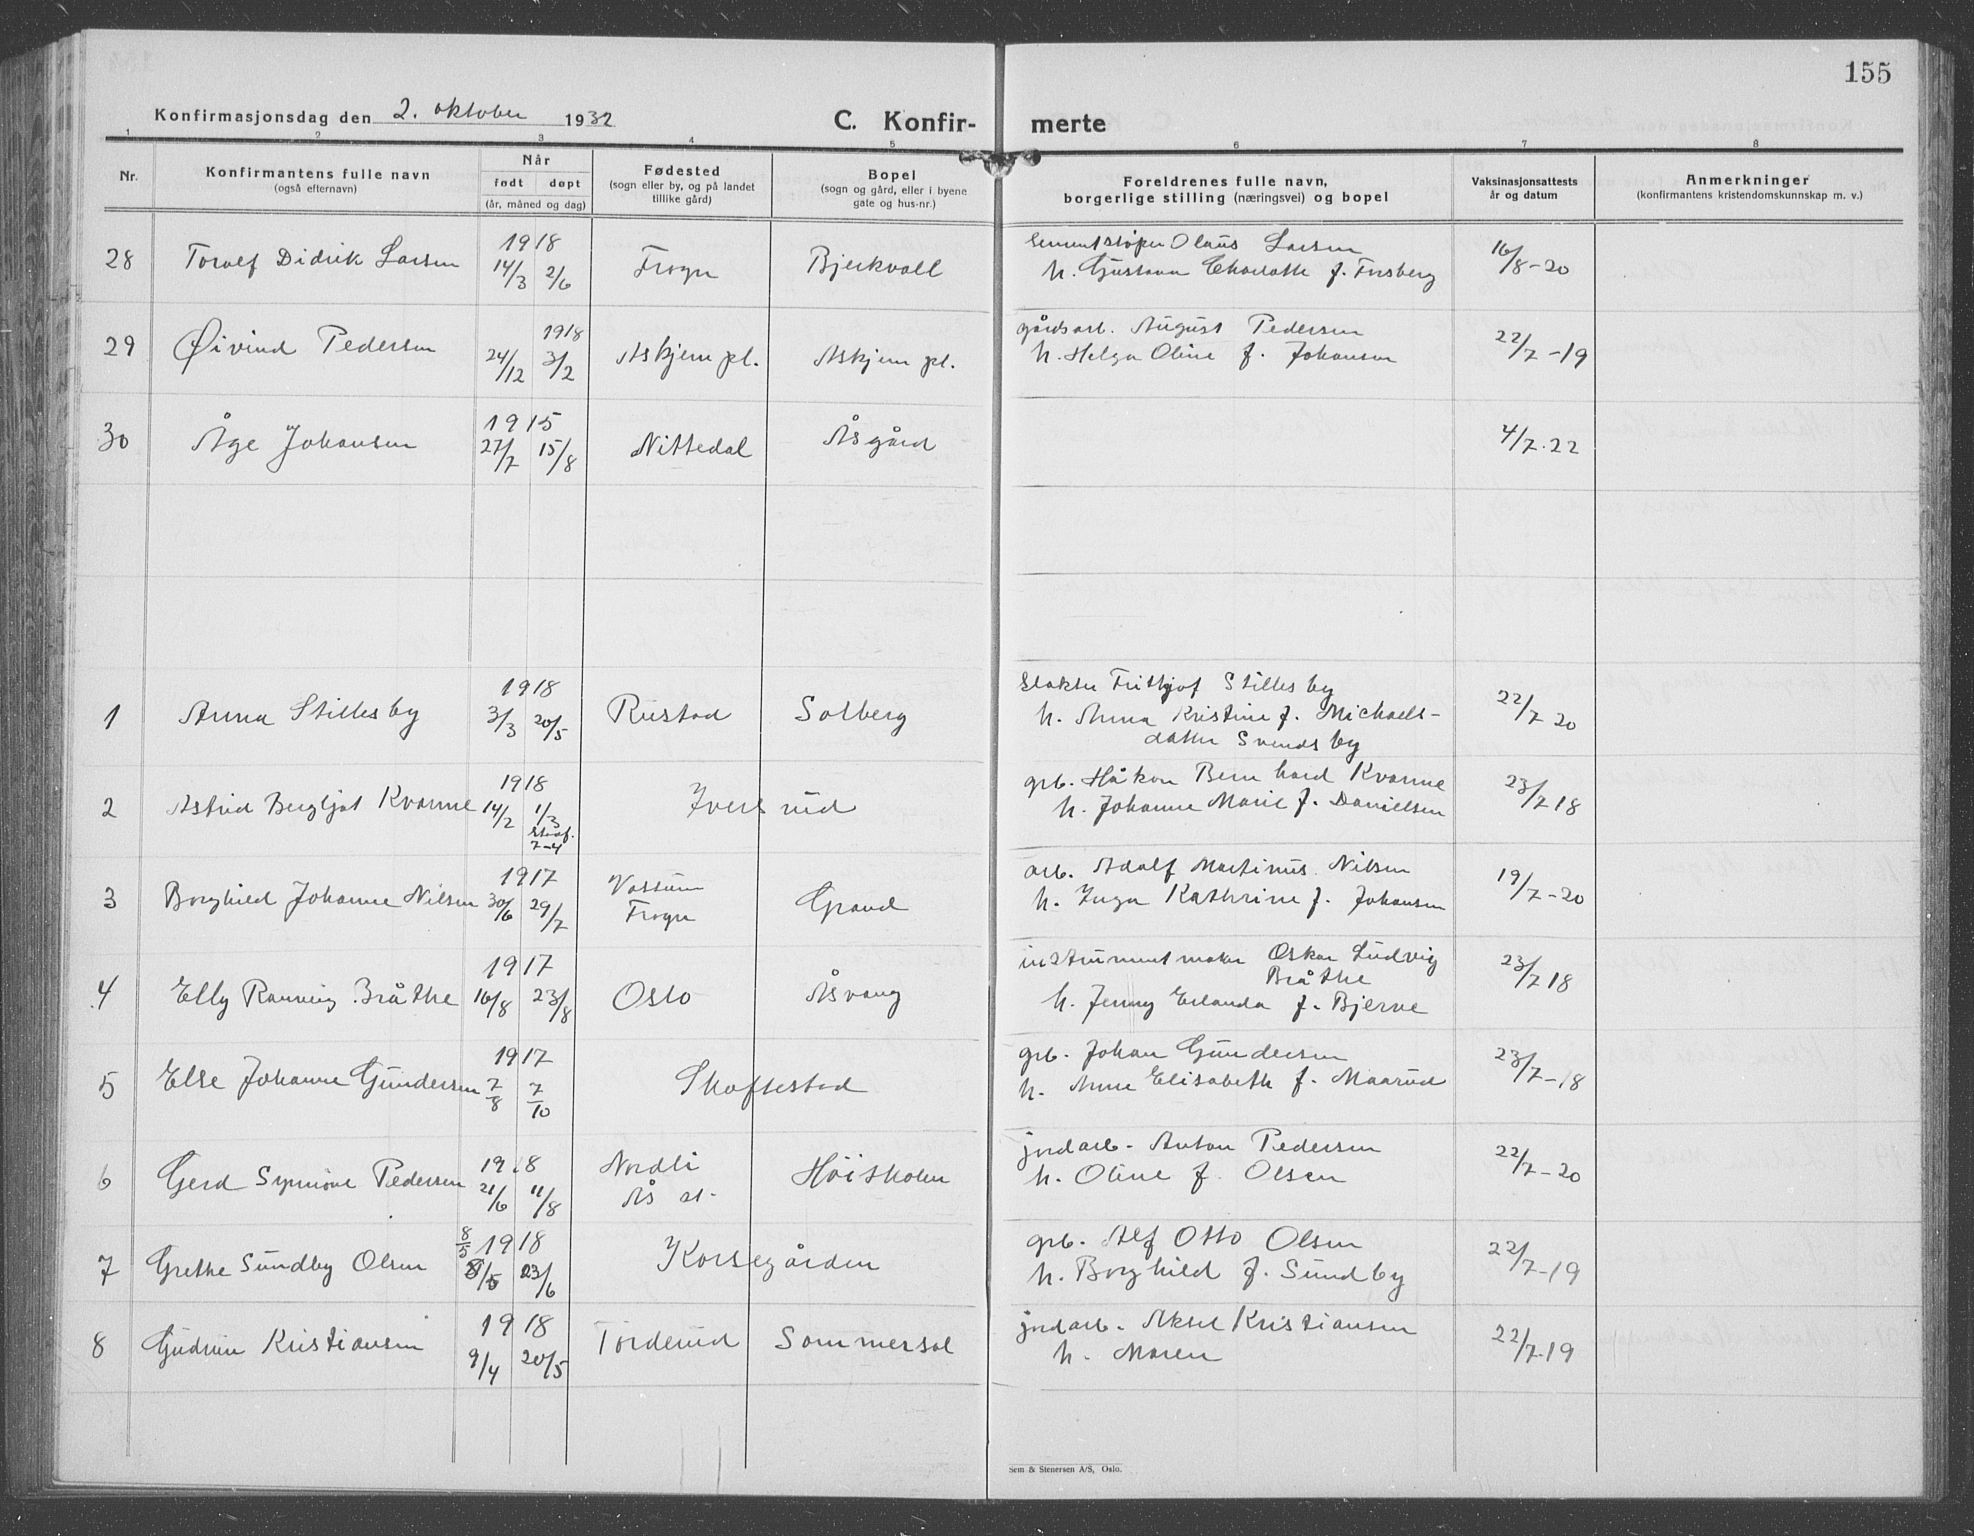 155
Konfirmasjonsdag den 2. oktober 1932
C. Konfir- merte
1 2 3 4 5 6 7 8
Nr.
Konfirmantens fulle navn
(også efternavn)
Når
født døpt
(år, måned og dag)
Fødested
(sogn eller by, og på landet
tillike gård)
Bopel
(sogn og gård, eller i byene
gate og hus-nr.)
Foreldrenes fulle navn,
borgerlige stilling (næringsvei) og bopel
Vaksinasjonsattests
år og datum
Anmerkninger
(konfirmantens kristendomskunnskap m. v.)
28 Toralf Didrik Larsen 1918 14/3 2/6 Frogn Bjerkvoll
sementstøper Olaus Larsen
h. Gustava Charlotte f. Forsberg
16/8-20
29 Øivind Pedersen 24/12 1918 3/2 Askjem pl. Askjem pl.
gårdsarb. August Pedersen
h. Helga Oline f. Johansen
22/7-19
30 Åge Johansen 1915 27/7 15/8 Nittedal Åsgård
4/7.22
1 Anna Stillesby 1918 3/3 20/5 Rustad Solberg
slakter Frithjof Stillesby
h. Anna Kristine f. Michaels-
datter Svendsby
22/7 20
2 Astrid Bergljot Kvarme 1918 14/2 1/3 stadf. 7-4 Iversrud
grb. Håkon Bernhard Kvarme
h. Johanne Marie f. Danielsen
23/7 18
3 Borghild Johanne Nilsen 1917 30/6 29/7 Vassum Frogn Grand
arb. Adolf Martinus Nilsen
h. Inga Kathrine f. Johansen
19/7-20
4 Elly Ranveig Bråthe 1917 16/8 23/8 Oslo Åsvang
instrumentmaker Oskar Ludvig
Bråthe
h. Jenny Erlanda f. Bjerve
23/7 18
5 Else Johanne Gundersen 1917 7/8 7/10 Skoftestad
grb. Johan Gundersen
h. Anne Elisabeth f. Maarud
23/7-18
6 Gerd Synnøve Pedersen 1918 21/6 11/8 Nordli Ås st. Høiskolen
jordarb. Anton Pedersen
h. Oline f. Olsen
22/7-20
7 Grethe Sundby Olsen 8/5 1918 8/5 23/6 Korsegården
grb. Alf Otto Olsen
h. Borghild f. Sundby
22/7-19
8 Gudrun Kristiansen 1918 9/4 20/5 Torderud Sommersol
jordarb. Aksel Kristiansen
h. Maren
22/7.19
Sem & Stenersen A/S, Oslo.